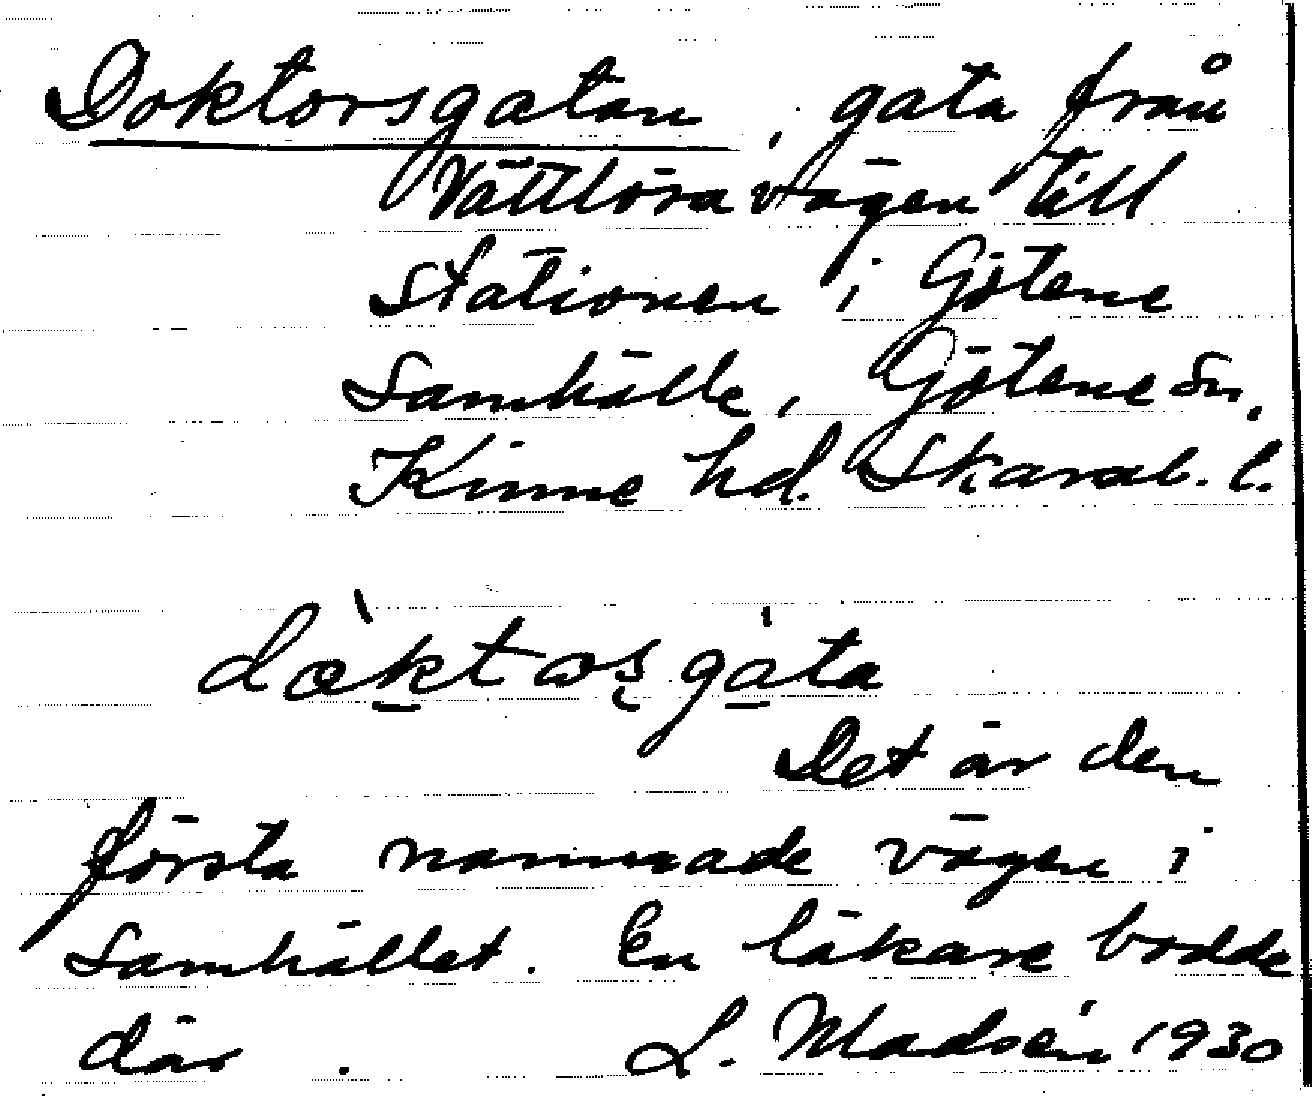 Doktorsgatan, gata från
Vättlösavägen till
Stationen i Götene
Samhälle, Götene sn,
Kinne hd. Skarab. l.
dòktosgáta
Det är den
första namnade vägen i
Samhället. En läkare bodde
där. L. Madsén 1930